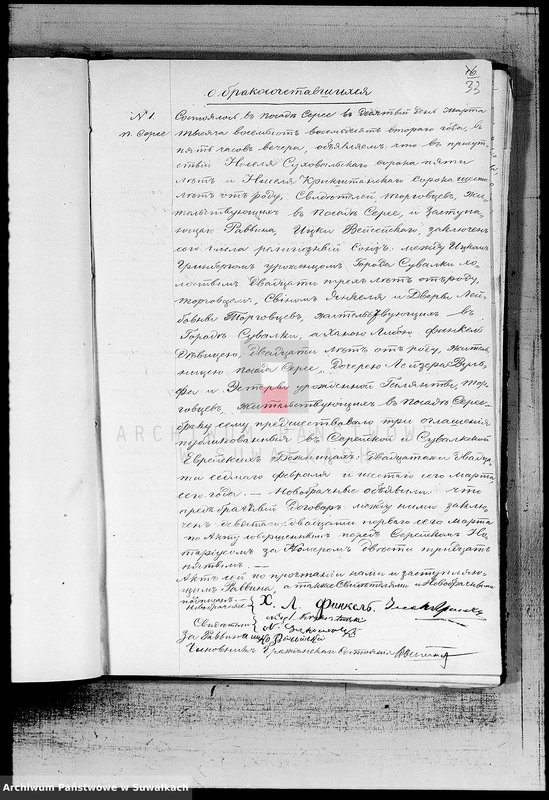 16
33
о бракосочетавшихся
№ 1
п. Сереє
Состоялось въ посадѣ Серее въ десятый день Марта
тысяча восемьсотъ восемьдесятъ втораго года, въ
пять часовъ вечера, объявляемъ, что въ присут
ствіи Носеля Суховольскаго сорока пяти
лѣтъ и Кринштанскаго сорока шести
лѣтъ отъ роду, Свидѣтелей торговцевъ, жи
тельствующихъ въ посадѣ Серее, и заступа
ющаго Раввина, Ицки Вейсейскаго, заключенъ
сего числа религіозный союзъ между Ицкомъ
Гринбергомъ уроженцомъ Города Сувалки хо
лостымъ двадцати трехъ лѣтъ отъ роду,
торговцемъ, Сыномъ Янкеля и Двейры Лей
бовны торговцевъ, жительствующихъ въ
Городѣ Сувалки, а Хаею Либою Финкель
дѣвицею, двадцати лѣтъ отъ роду, житель
ницею посада Серее, Дочерею Лейзера Вуль
фа и Эстеры урожденной торг
говцевъ, жительствующихъ въ посадѣ Серее.
Браку сему предшествовало три оглашенія
публикованныя въ Серейской и Сувалкской
Еврейскихъ Божницахъ: двадцатаго двадца
ти седьмаго февраля и шестаго сего Марта
сего года. — Новобрачные объявили что
предбрачный договоръ между ними заклю
ченъ двадцать перваго сего Марта
по Акту совершенному передъ Серейскимъ Но
таріусомъ за Номеромъ двести тридцать
пятымъ. —
Актъ сей по прочтаніи нами и заступаю
щимъ Раввина, а также Свидѣтелями и Новобрачными
подписанъ. —
Новобрачные { Х. Л. Финкель.
Свидѣтели {
За Раввина
Чиновникъ Гражданскаго состоянія
ARCHIWUM PAŃSTWOWE
W SUWAŁKACH
Archiwum Państwowe w Suwałkach